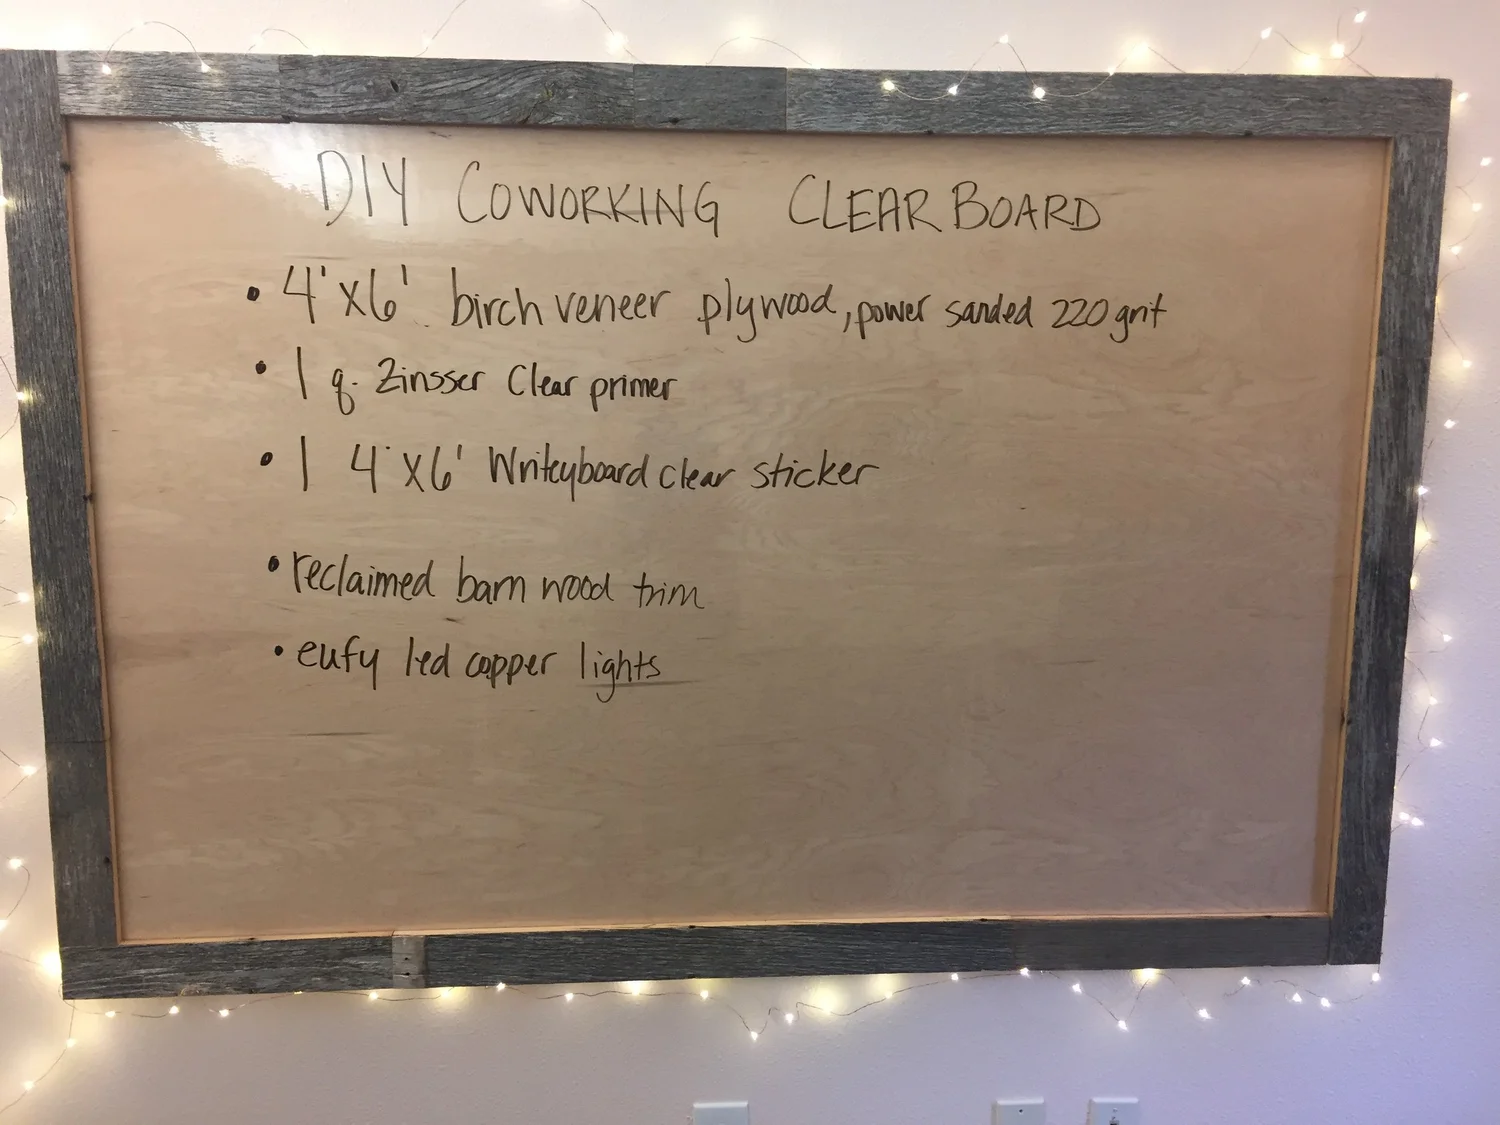 DIY COWORKING CLEAR BOARD
• 4'x6' birch veneer plywood, power sanded 220 grit
• 1 q. Zinsser Clear primer
• 1 4'x6' Writeyboard clear sticker
• reclaimed barn wood trim
• eufy led copper lights